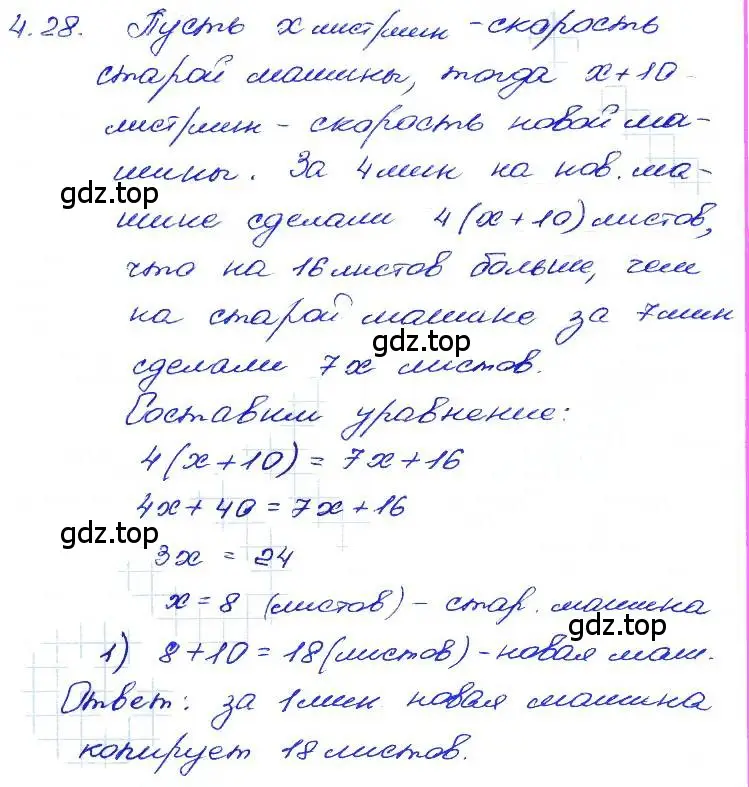 4.28. Пусть x лист/мин - скорость
старой машины, тогда x+10
лист/мин - скорость новой ма-
шины. За 4 мин на нов. ма-
gdz.top
шине сделали 4(x+10) листов,
что на 16 листов больше, чем
на старой машине за 7 мин
gdz.top
сделали 7x листов.
Составим уравнение:
4(x+10) = 7x+16
4x+40 = 7x+16
gdz.top
3x = 24
x = 8 (листов) - стар. машина
gdz.top
1) 8+10 = 18 (листов) - новая маш.
Ответ: за 1 мин новая машина
копирует 18 листов.